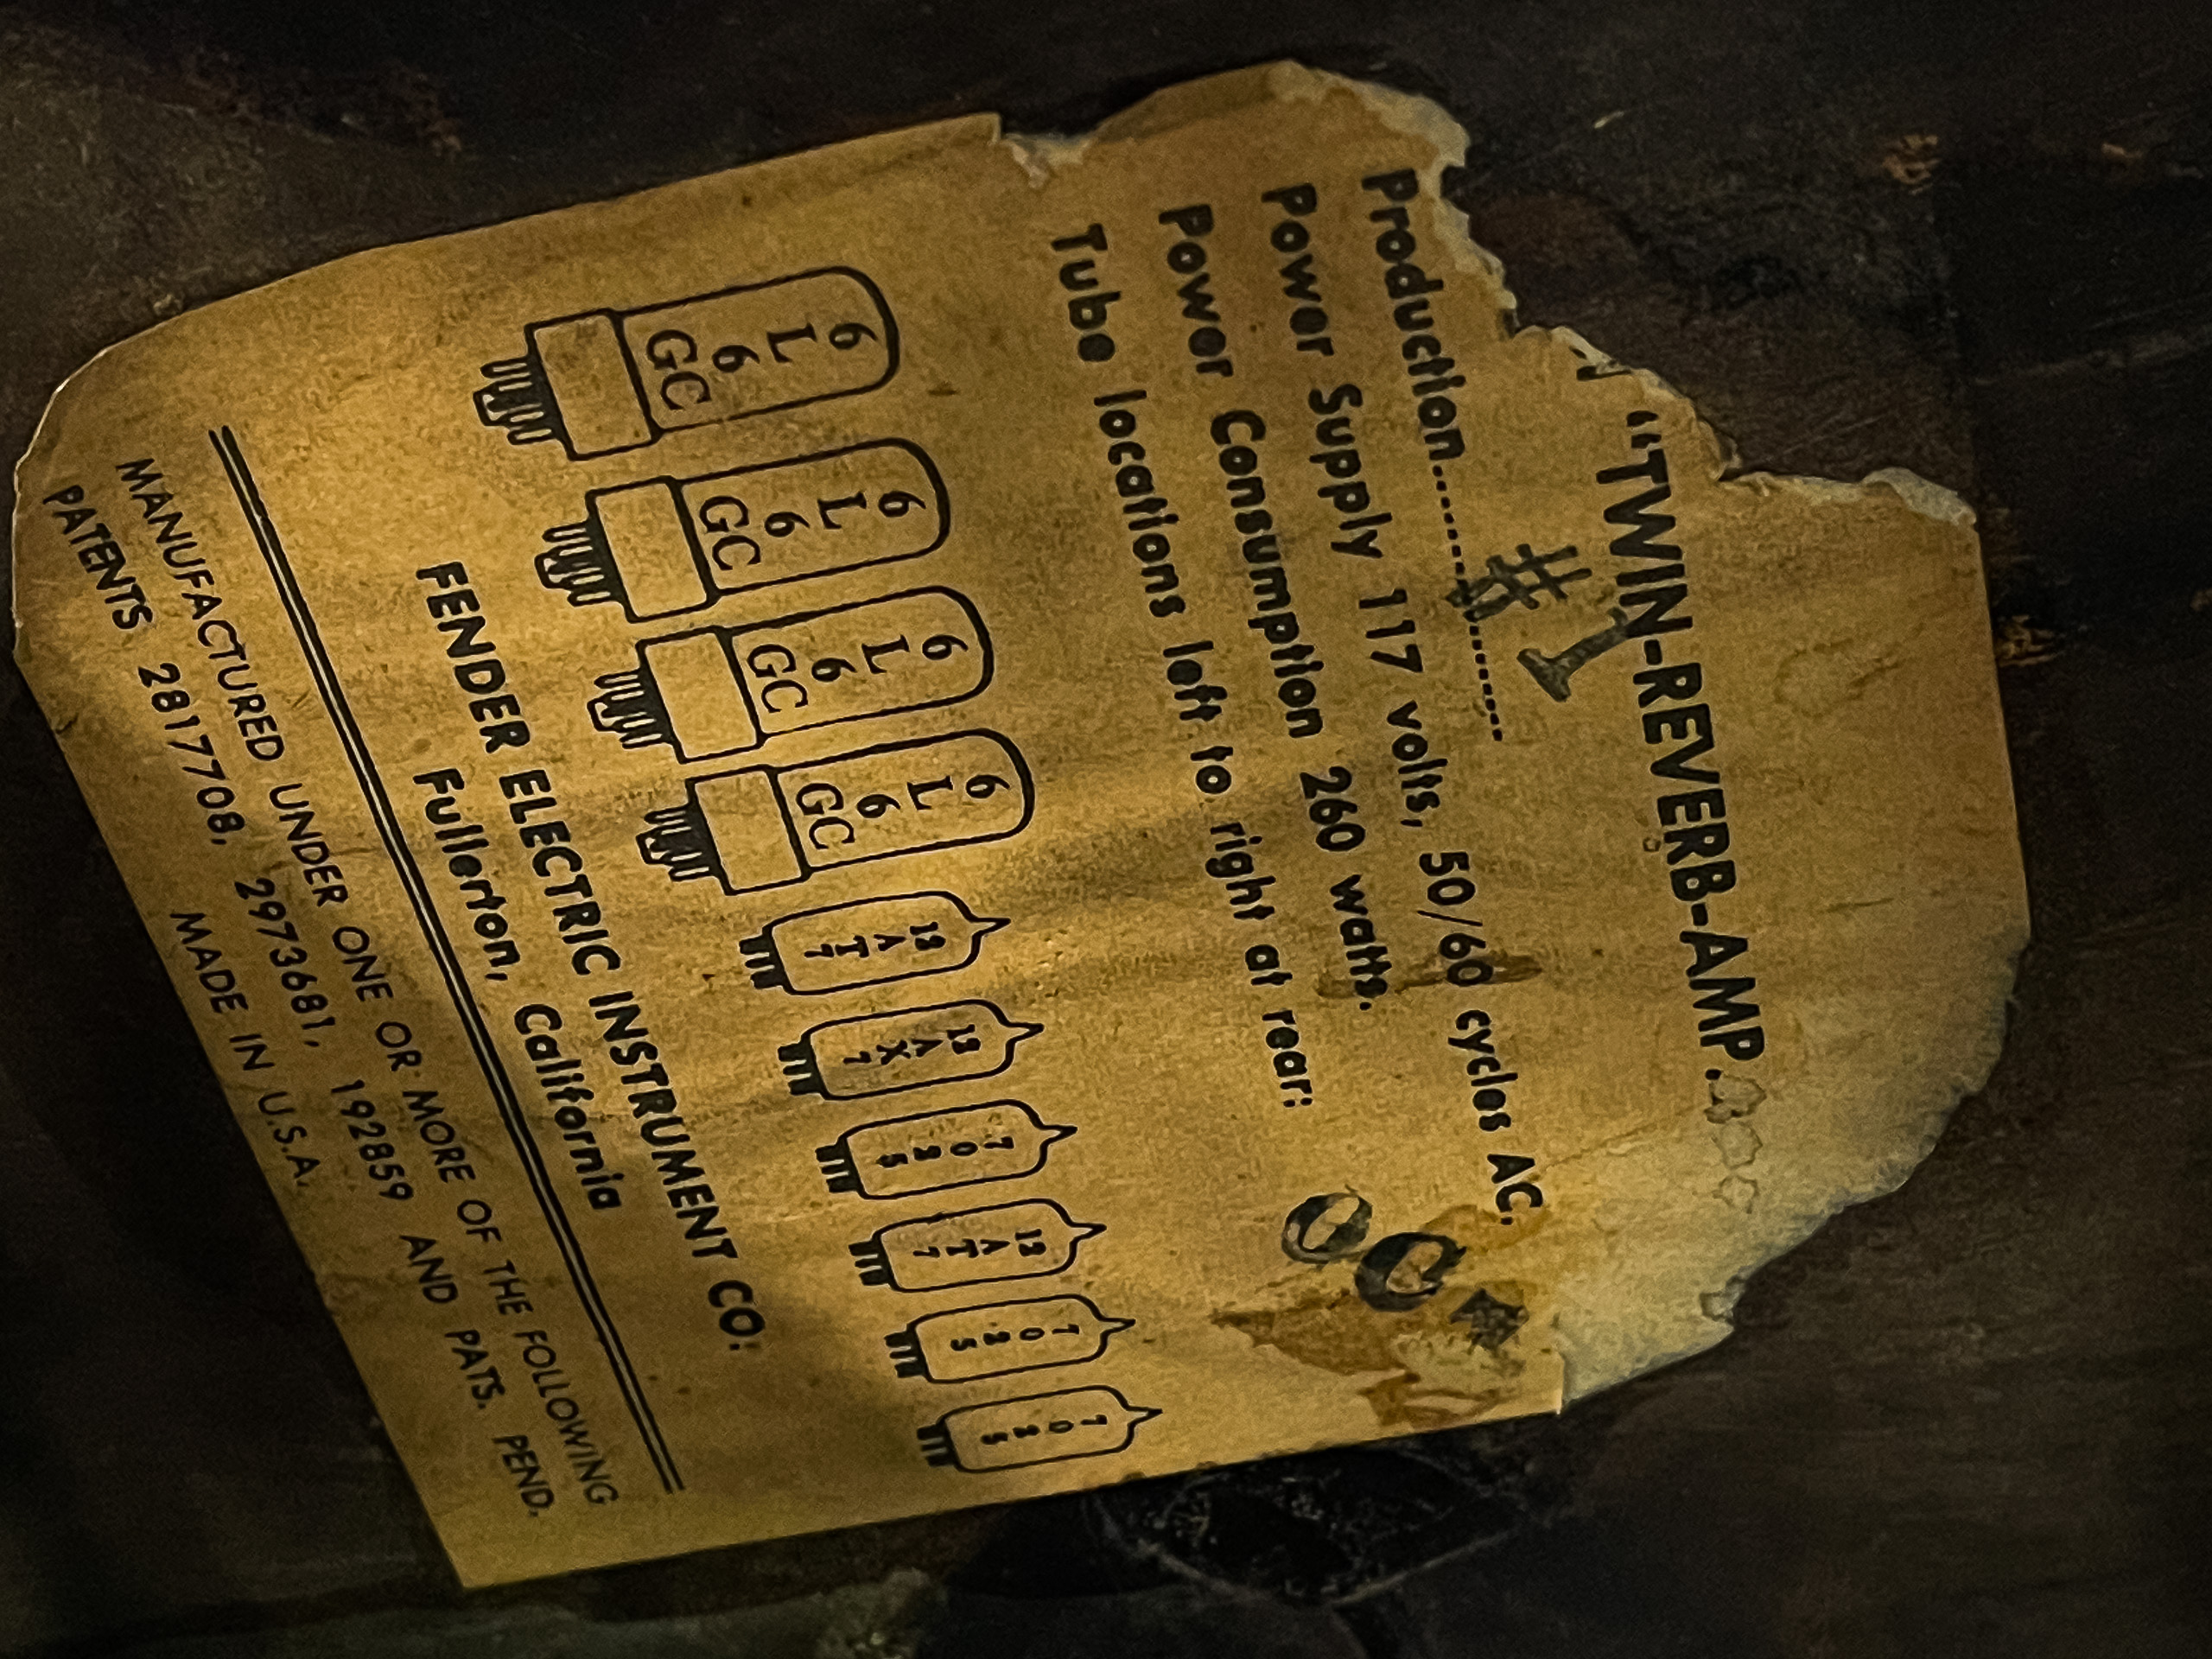 "TWIN-REVERB-AMP.
#1
Production
Power Supply 117 volts, 50/60 cycles AC.
Power Consumption 260 watts.
Tube locations left to right at rear:
6
L
6
GC
6
L
6
GC
6
L
6
GC
6
L
6
GC
12
A
T
7
12
A
X
7
7
0
2
5
12
A
T
7
7
0
2
5
7
0
2
5
FENDER ELECTRIC INSTRUMENT CO.
Fullerton, California
MANUFACTURED UNDER ONE OR MORE OF THE FOLLOWING
PATENTS 2817708, 2973681, 192859 AND PATS. PEND.
MADE IN U.S.A.